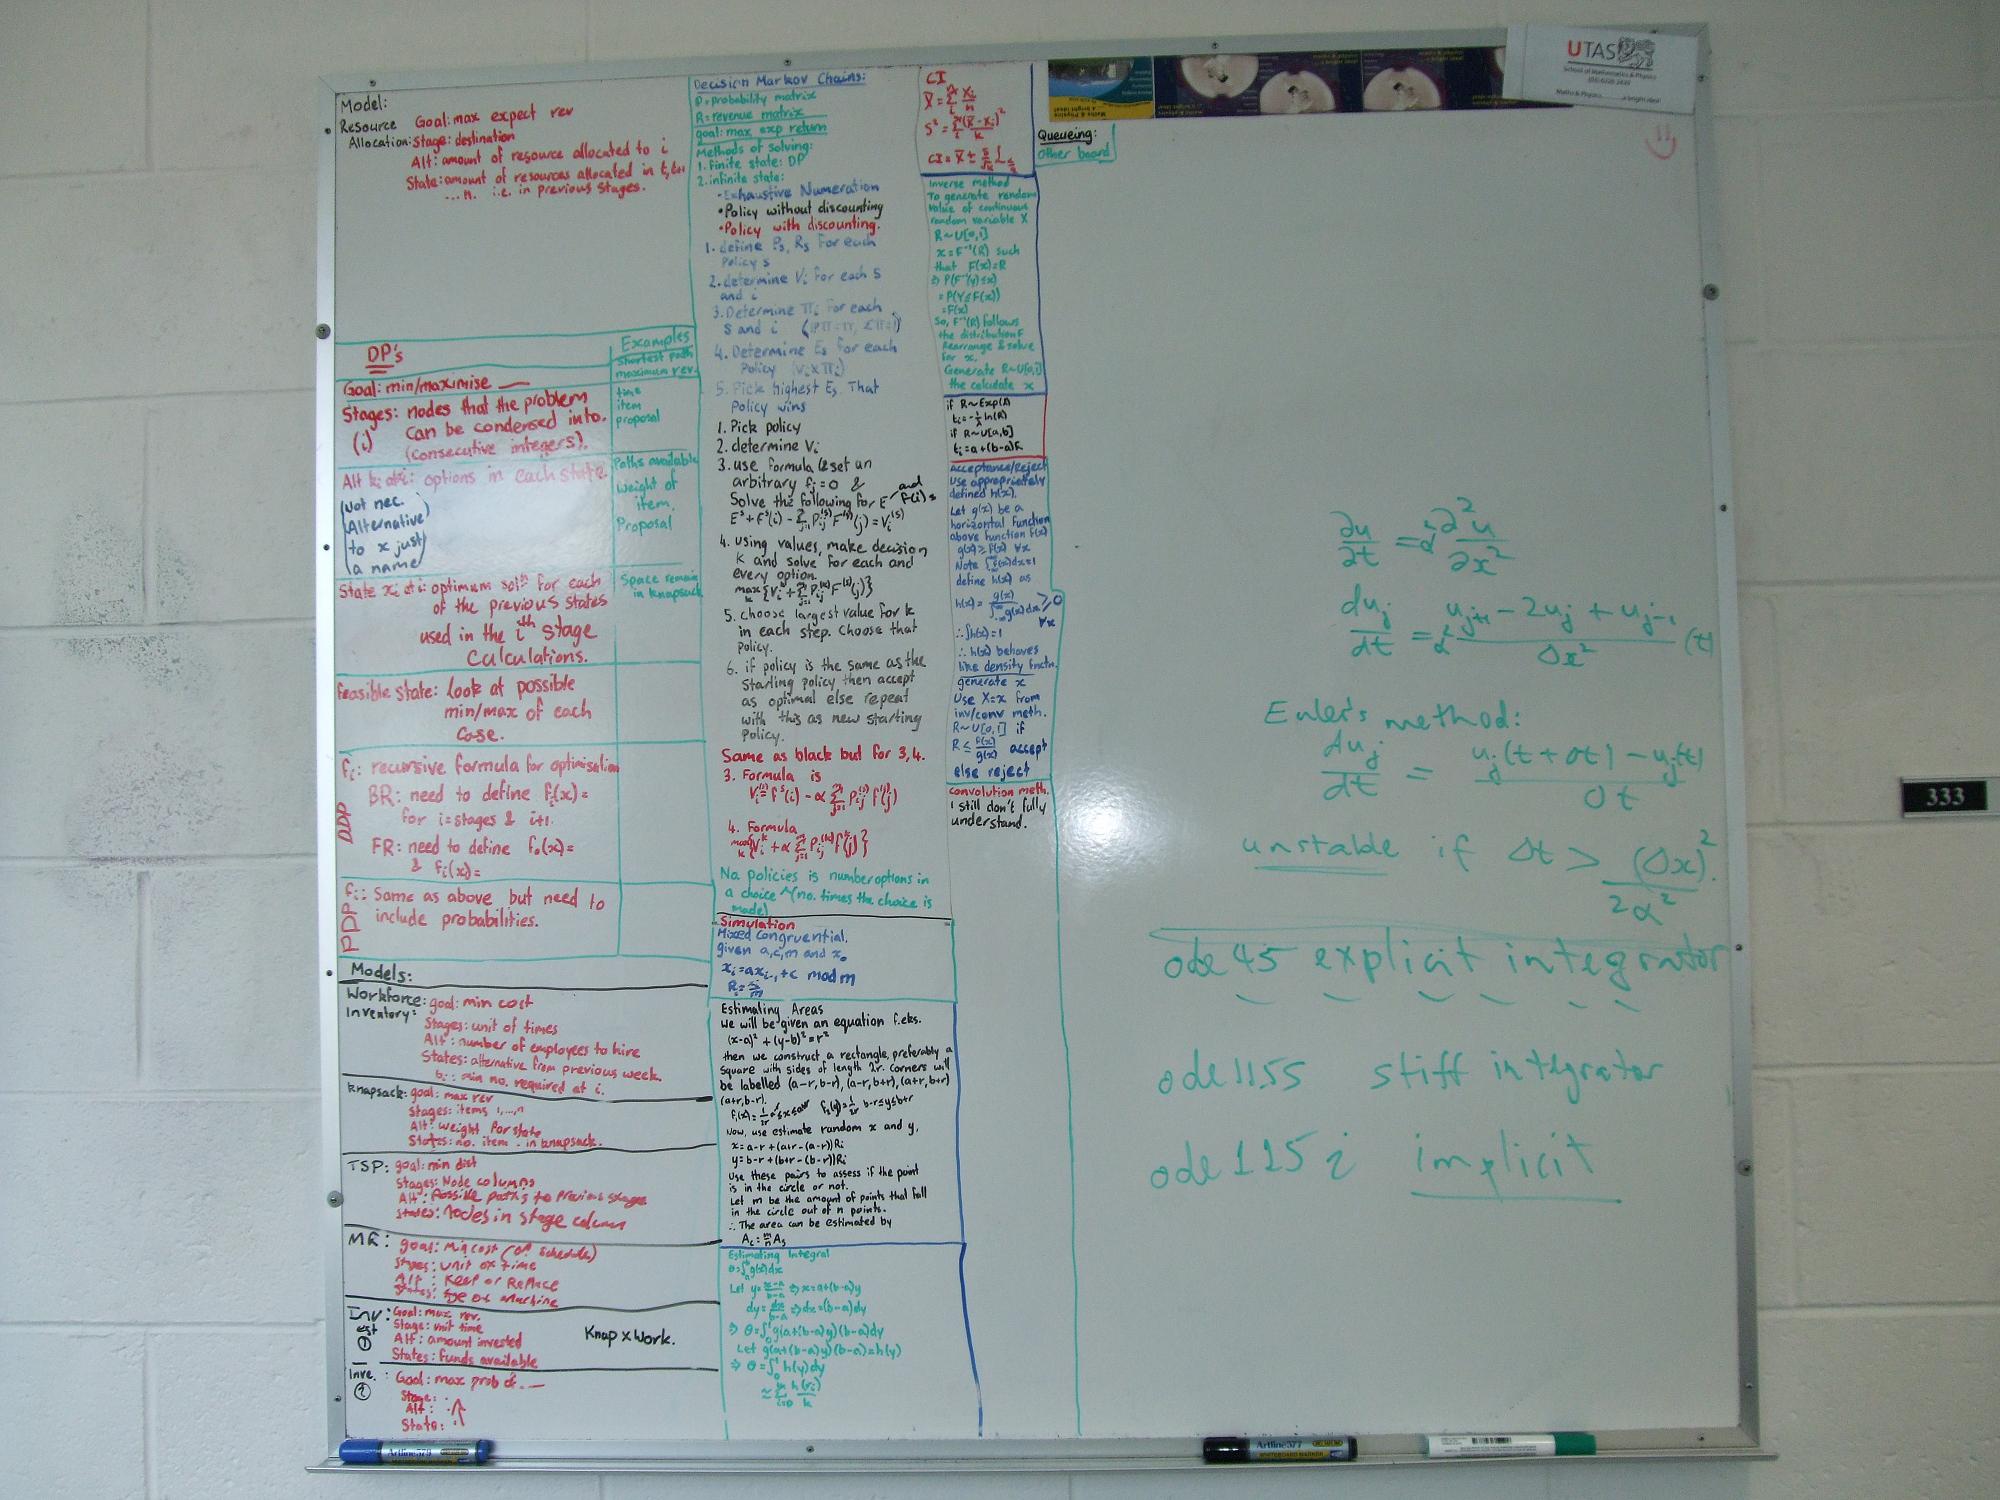 Model:
Resource Allocation:
Goal: max expect rev
Stage: destination
Alt: amount of resource allocated to i
State: amount of resources allocated in
... n. i.e. in previous stages.
DP's
Examples
Shortest path
maximum rev.
Goal: min/maximise
Stages: nodes that the problem
(i) can be condensed into.
(consecutive integers).
time
item
proposal
Alt ki at i: options in each state.
(Not nec.
Alternative
to x just
a name)
Paths available
Weight of
item.
Proposal
State xi at i: optimum solⁿ for each
of the previous states
used in the iᵗʰ stage
calculations.
Space remain
in knapsack
feasible state: Look at possible
min/max of each
case.
DDP
fi: recursive formula for optimisation
BR: need to define fi(x)=
for i=stages & i+1.
FR: need to define f₀(x)=
& fi(x)=
PDP
fi: Same as above but need to
include probabilities.
Models:
Workforce: goal: min cost
Inventory:
Stages: unit of times
Alt: number of employees to hire
States: alternative from previous week.
bi: min no. required at i.
Knapsack: goal: max rev
Stages: items 1,...,n
Alt: weight for state
States: no. item in knapsack.
TSP: goal: min dist
Stages: Node columns
Alt: Possible paths to previous stage
States: nodes in stage column
MR: goal: min cost (opt schedule)
Stages: unit of time
Alt: Keep or Replace
States: age of machine
Invest ①
Goal: max rev.
Stage: unit time
Alt: amount invested
States: funds available
Knap x Work.
Inve. ②: Goal: max prob of. —
Stage:
Alt:
State:
Decision Markov Chains:
P=probability matrix
R=revenue matrix
goal: max exp return
Methods of solving:
1. finite state: DP
2. infinite state:
- Exhaustive Numeration
• Policy without discounting
• Policy with discounting.
1. define Ps, Rs for each
Policy s
2. determine Vi for each s
and i
3. Determine πi for each
s and i (Pπ=π, Σπ=1)
4. Determine Es for each
Policy (Vi x πi)
5. Pick highest Es. That
Policy wins
1. Pick policy
2. determine Vi
3. use formula & set an
arbitrary fj=0 &
Solve the following for E and f(i)s
4. using values, make decision
k and solve for each and
every option.
5. choose largest value for k
in each step. Choose that
policy.
6. if policy is the same as the
starting policy then accept
as optimal else repeat
with this as new starting
Policy.
Same as black but for 3,4.
3. Formula is
4. Formula
No. policies is number options in
a choice ^(no. times the choice is
made)
Simulation
Mixed Congruential.
given a,c,m and x₀
xᵢ=axᵢ₋₁+c mod m
Estimating Areas
We will be given an equation f. eks.
(x-a)² + (y-b)² = r²
then we construct a rectangle, preferably a
square with sides of length 2r. Corners will
be labelled (a-r, b-r), (a-r, b+r), (a+r, b+r)
(a+r, b-r).
Now, use estimate random x and y,
x=a-r+(a+r-(a-r))Ri
y=b-r+(b+r-(b-r))Ri
Use these pairs to assess if the point
is in the circle or not.
Let m be the amount of points that fall
in the circle out of n points.
∴ The area can be estimated by
Ac = m/n As
Estimating Integral
θ=∫g(x)dx
Let y=(x-a)/(b-a) ⇒ x=a+(b-a)y
dy=dx/(b-a) ⇒ dx=(b-a)dy
⇒ θ=∫₀¹g(a+(b-a)y)(b-a)dy
Let g(a+(b-a)y)(b-a)=h(y)
⇒ θ=∫₀¹h(y)dy
CI
Inverse method
To generate random
value of continuous
random variable X
R~U[0,1]
x=F⁻¹(R) such
that F(x)=R
⇒ P(F⁻¹(y)≤x)
=P(Y≤F(x))
=F(x)
So, F⁻¹(R) follows
the distribution F
Rearrange & solve
for x.
Generate R~U[0,1]
the calculate x
if R~Exp(λ)
ti=-1/λ ln(R)
if R~U[a,b]
ti=a+(b-a)R
Acceptance/Reject
Use appropriately
defined h(x).
Let g(x) be a
horizontal function
above function f(x)
g(x)≥f(x) ∀x
Note ∫f(x)dx=1
define h(x) as
h(x)=g(x)/∫g(x)dx ≥0 ∀x
∴∫h(x)=1
∴ h(x) behaves
like density fnctn.
generate x
Use X=x from
inv/conv meth.
R~U[0,1] if
R ≤ f(x)/g(x) accept
else reject
Convolution meth.
I still don't fully
understand.
Queueing:
Other board
UTAS
School of Mathematics & Physics
∂u/∂t = α² ∂²u/∂x²
duj/dt = α² (uj+1 - 2uj + uj-1)/Δx² (t)
Euler's method:
duj/dt = (uj(t+Δt) - uj(t))/Δt
unstable if Δt > (Δx)²/2α².
ode45 explicit integrator
ode115s stiff integrator
ode115i implicit
333
Artline 579
Artline 577